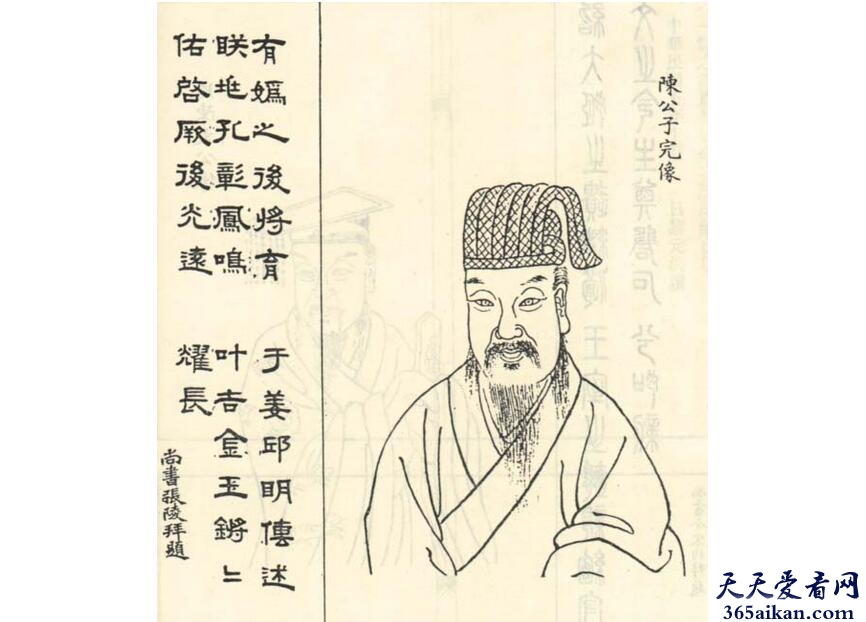 陳公子完像
有嬀之後將育 于姜邱明傳述
昳𠀉孔彰鳳鳴 叶吉金玉鏘〻
佑啓厥後光遠 燿長
尚書張陵拜題
天天爱看网
365aikan.com